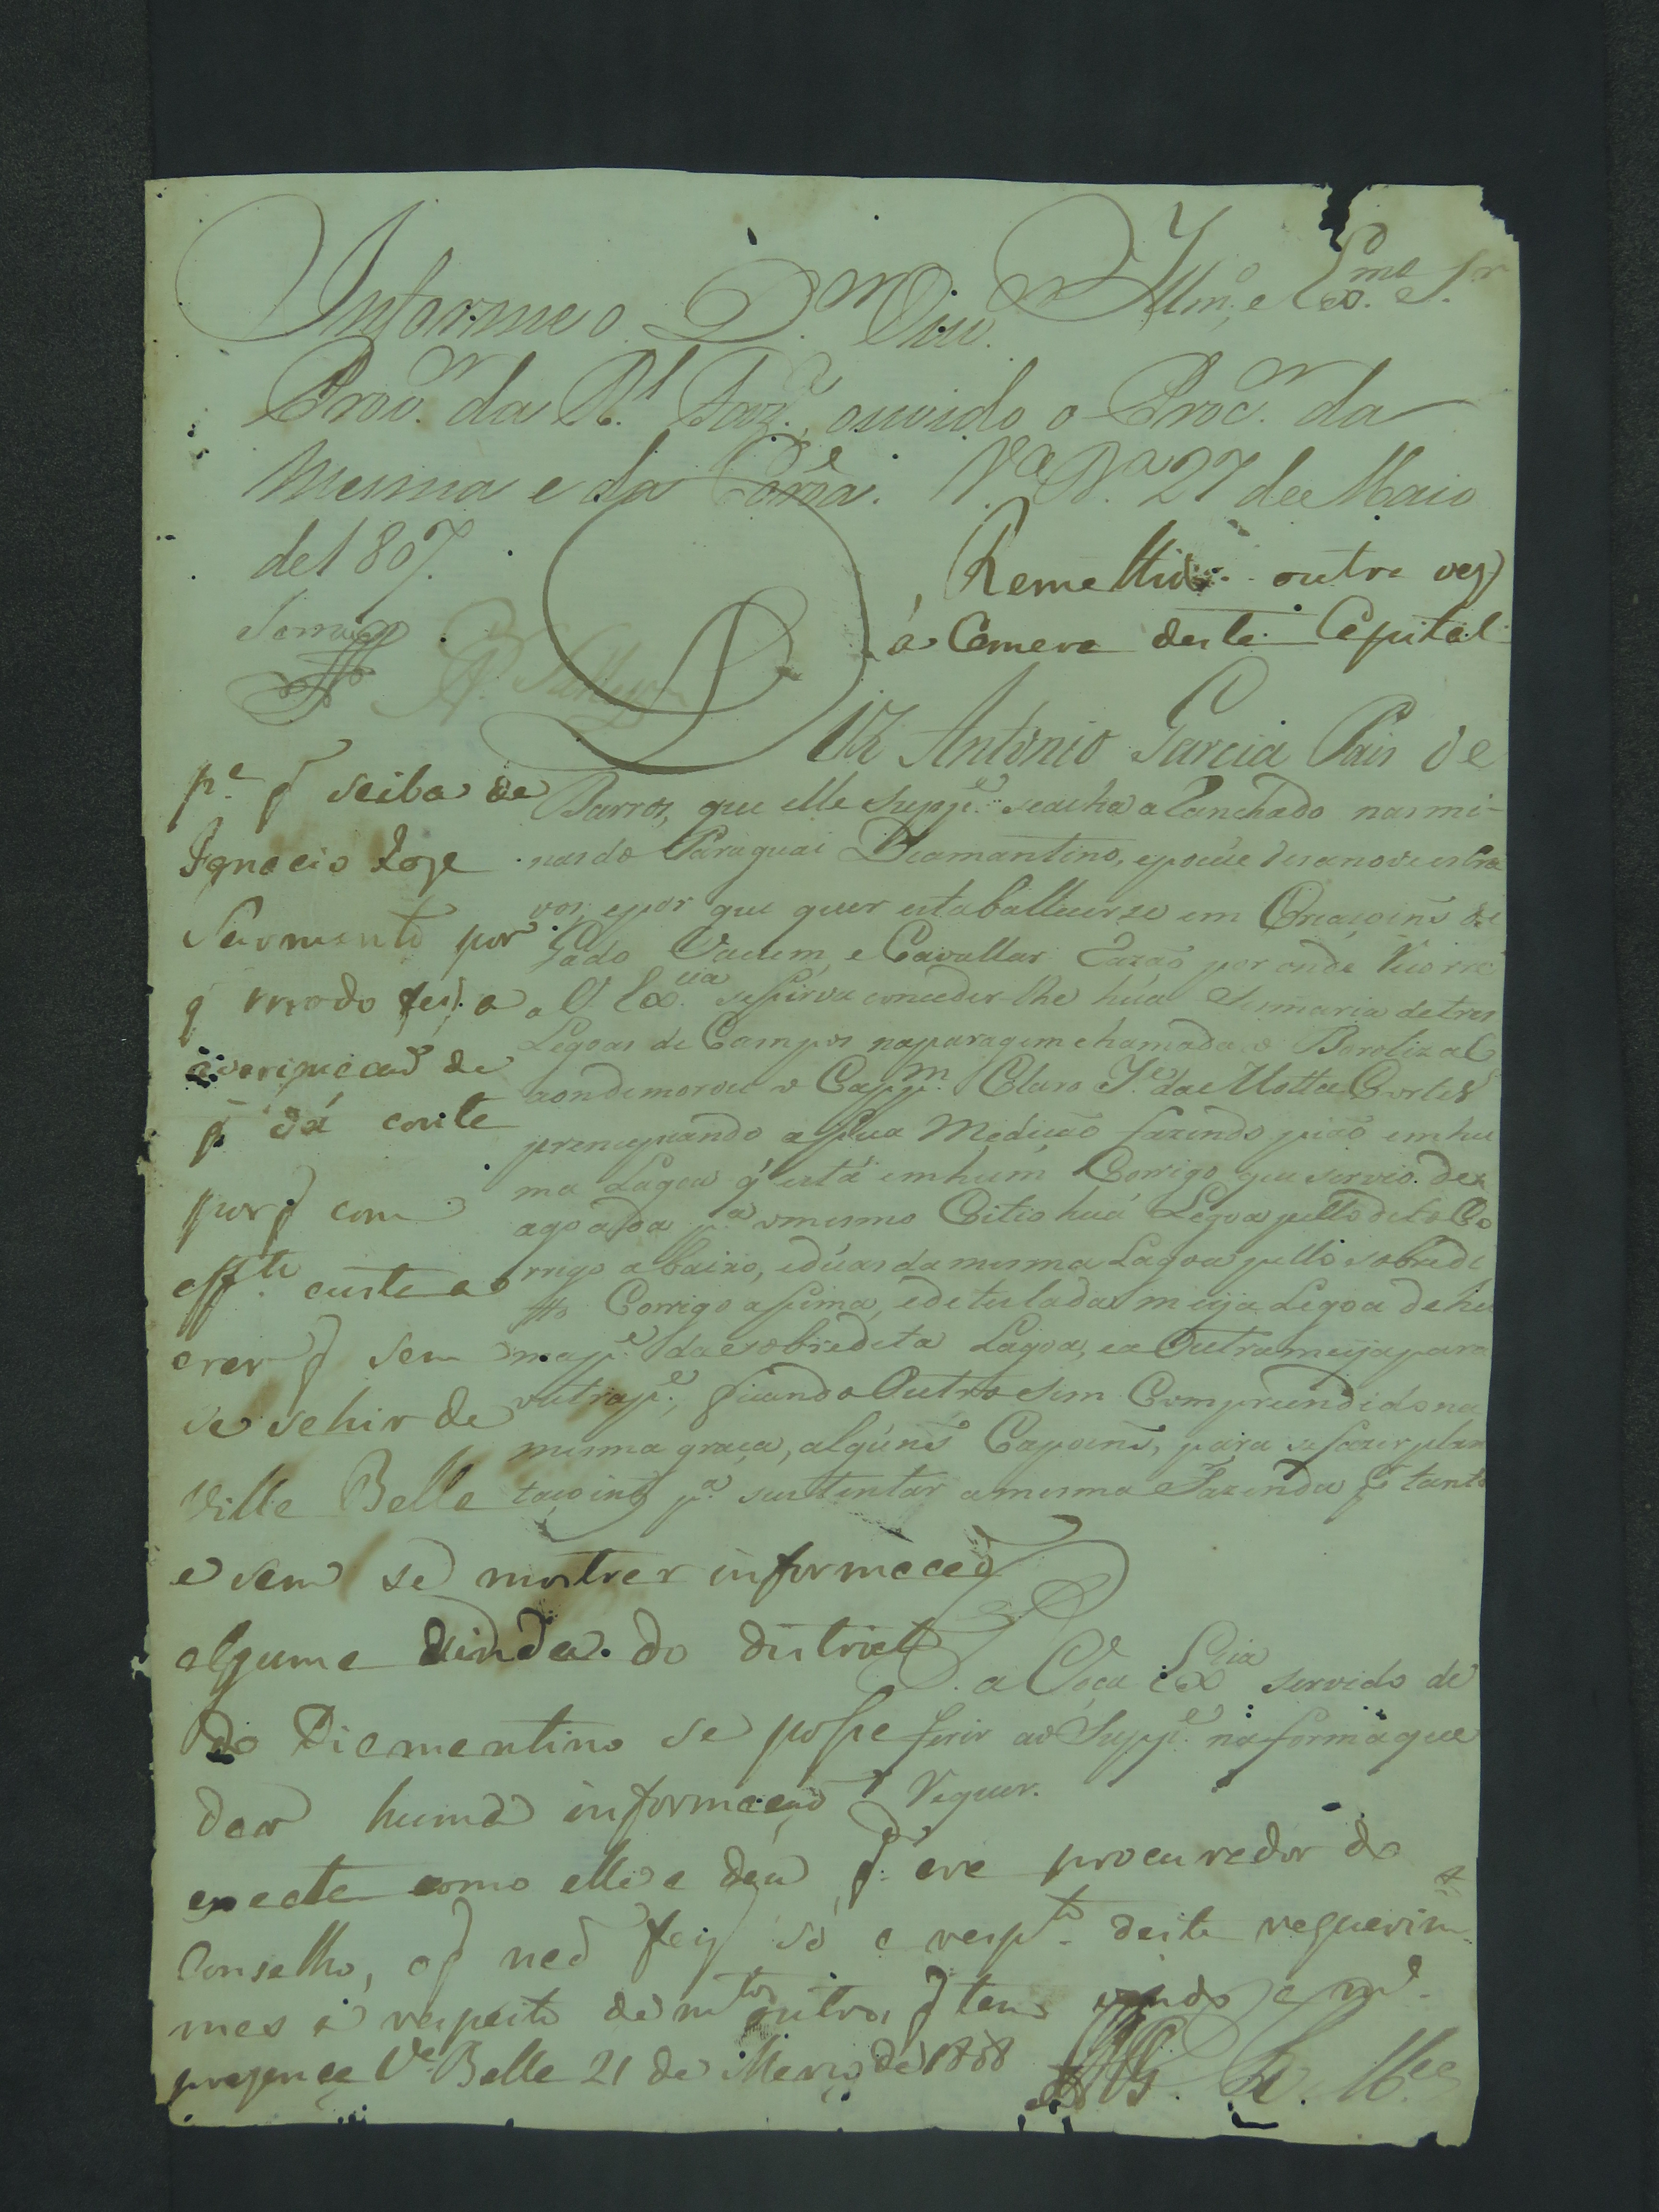 Informe o D.or Ouv.
Illm.o e Exmo. Sr.
Prov.or da R.l Faz.a, ouvido o Proc.or da
mesma e da Corôa. V.a B.a 27 de Maio
de 1807.
Remettido outra vez
á Camera desta Capital
Diz Antônio Garcia Pais de
Barros, que elle Supp.e se acha aRanchado nas mi-
nas do Paraguai Diamantino, e posúe desanove escra
vos, e por que quer estaballecerse em Criaçoins de
Gado Vacum, e Cavallar Razaõ por onde Recorre
a V. Ex.cia se sirva conceder-lhe hũa Sesmaria de tres
Legoas de Campos na paragem chamada o BoroLizal
aonde morou o Capp.m Claro J.e da Motta Cortes
prencipiando a sua Mediçaõ fazendo piaõ em hu
ma Lagoa q' está em hum Corrigo que servio de
agoada p.a o mesmo Citio huã Legoa pello dito Co
rrigo abaixo, e dúas da mesma Lagoa pello sobredi
tto Corrigo asima, e de tuladas meija Legoa de hu
ma p.e da sobredita Lagoa, e a Outra meija para
outra p.e, ficando Outro sim Compreendido na
mesma graça, algúns Capoens, para se fazer plan
taçoins p.a sustentar a mesma Fazenda P. tanto
P. a Voça Ex.cia servido de
ferir ao Supp.e na forma que
Requer.
E. R. M.ce
p.a q' seiba de
Ignacio Joze
Sarmento por
q' modo fez a
averiguacaõ de
q' dá conta
porq' com
eff.to custa a
crer q' sem
se sahir de
Villa Bella
e sem se mostrar informacaõ
alguma vinda do districto
do Diamentino se posse
dar huma informacaõ
exacta como elle a deu q.do era procurador do
Conselho, o q' naõ fez só a resp.to deste requerim
mas á respeito de m.tos outros q' tem vindo a m.a
prezença V.a Bella 21 de Março de 1808